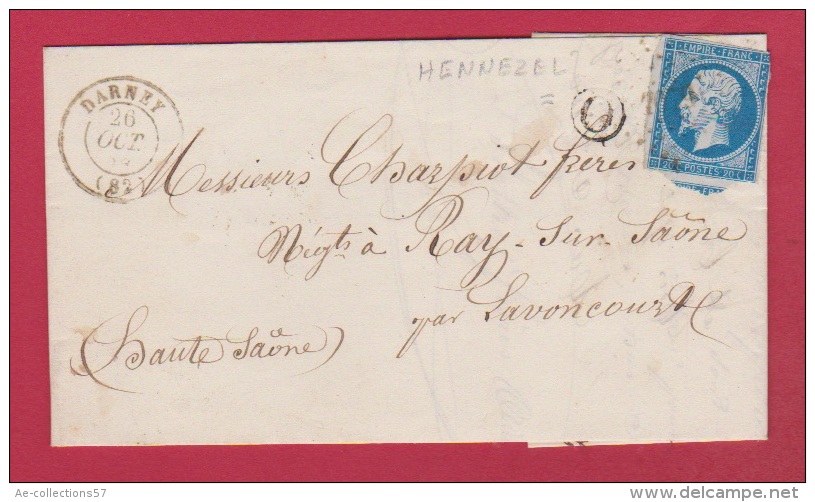 HENNEZEL
=
DARNEY
26
OCT.
(82)
O
EMPIRE FRANC
POSTES 20 C
Messieurs Charpiot frères
Négts à Ray-sur-Saône
par Lavoncourt
(Haute Saône)
Ae-collections57
delcampe.net